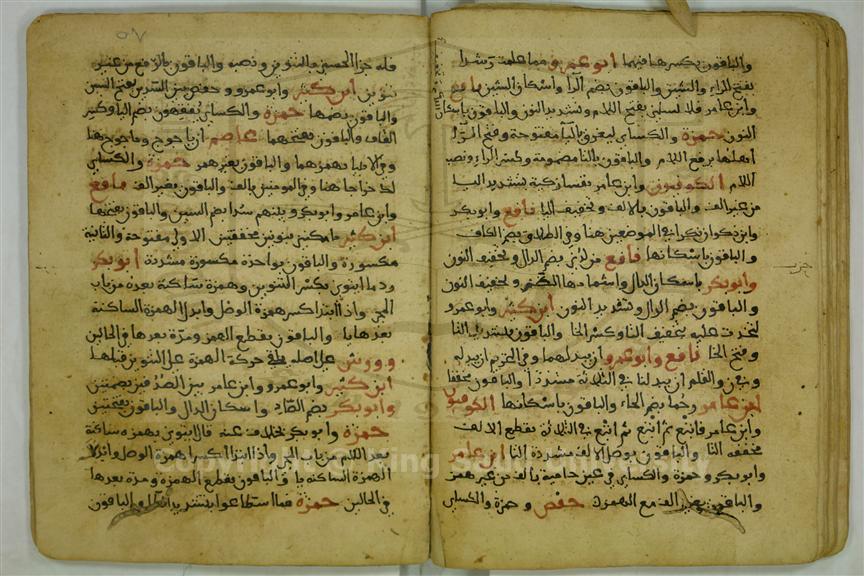 والباقون بكسرها فيهما ابو عمرو مما علمت رشدا
بفتح الراء والشين والباقون بضم الرا واسكان الشين نافع
وابن عامر فلا تسلني بفتح اللام وتشديد النون والباقون باسكان
النون حمزة والكسائي ليغرق باليا مفتوحة وفتح الرا
اهلها برفع اللام والباقون بالتا مضمومة وكسر الراء ونصب
اللام الكوفيون وابن عامر نفسا زكية بتشديد اليا
من غير الف والباقون بالالف وتخفيف اليا نافع وابو بكر
وابن ذكوان نكرا في الموضعين هنا وفي الطلاق بضم الكاف
والباقون باسكانها نافع من لدني بضم الدال وتخفيف النون
وابو بكر باسكان الدال واشمامها الضم وتخفيف النون
والباقون بضم الدال وتشديد النون ابن كثير وابو عمرو
لتخذت عليه بتخفيف التا وكسر الخا والباقون بتشديد التا
وفتح الخا نافع وابو عمرو ان يبدلهما وفي التحريم ان يبدله
وفي ن والقلم ان يبدلنا في الثلاثة مشددا والباقون مخففا
ابن عامر رحما بضم الحاء والباقون باسكانها الكوفيون
وابن عامر فاتبع ثم اتبع ثم اتبع في الثلاثة بقطع الالف
مخففة التا والباقون بوصل الالف مشددة التا ابن عامر
وابو بكر وحمزة والكسائي في عين حامية بالف من غير همز
والباقون بغير الف مع الهمزة حفص وحمزة والكسائي
فله جزا الحسنى بالتنوين ونصبه والباقون بالرفع من غير
تنوين ابن كثير وابو عمرو وحفص بين السدين بفتح السين
والباقون بضمها حمزة والكسائي يفقهون بضم اليا وكسر
القاف والباقون بفتحهما عاصم ان ياجوج وماجوج هنا
وفي الانبيا بهمزهما والباقون بغير همز حمزة والكسائي
لك خراجا هنا وفي المومنين بالف والباقون بغير الف نافع
وابن عامر وابو بكر وبينهم سدا بضم السين والباقون بفتحها
ابن كثير ما مكنني بنونين مخففتين الاولى مفتوحة والثانية
مكسورة والباقون بواحدة مكسورة مشددة ابو بكر
ردما ايتوني بكسر التنوين وهمزة ساكنة بعده من باب
المجي واذا ابتدا كسر همزة الوصل وابدل الهمزة الساكنة
بعدها يا والباقون بقطع الهمز ومدة بعدها في الحالين
وورش على اصله يلقي حركة الهمزة على التنوين قبلها
ابن كثير وابو عمرو وابن عامر بين الصدفين بضمتين
وابو بكر بضم الصاد واسكان الدال والباقون بفتحتين
حمزة وابو بكر بخلاف عنه قال ايتوني بهمزة ساكنة
بعد اللام من باب المجي واذا ابتدا كسرا همزة الوصل وابدلا
الهمزة الساكنة يا والباقون بقطع الهمزة ومدة بعدها
في الحالين حمزة فما اسطاعوا بتشديد الطا والباقون
Copyright © King Saud University